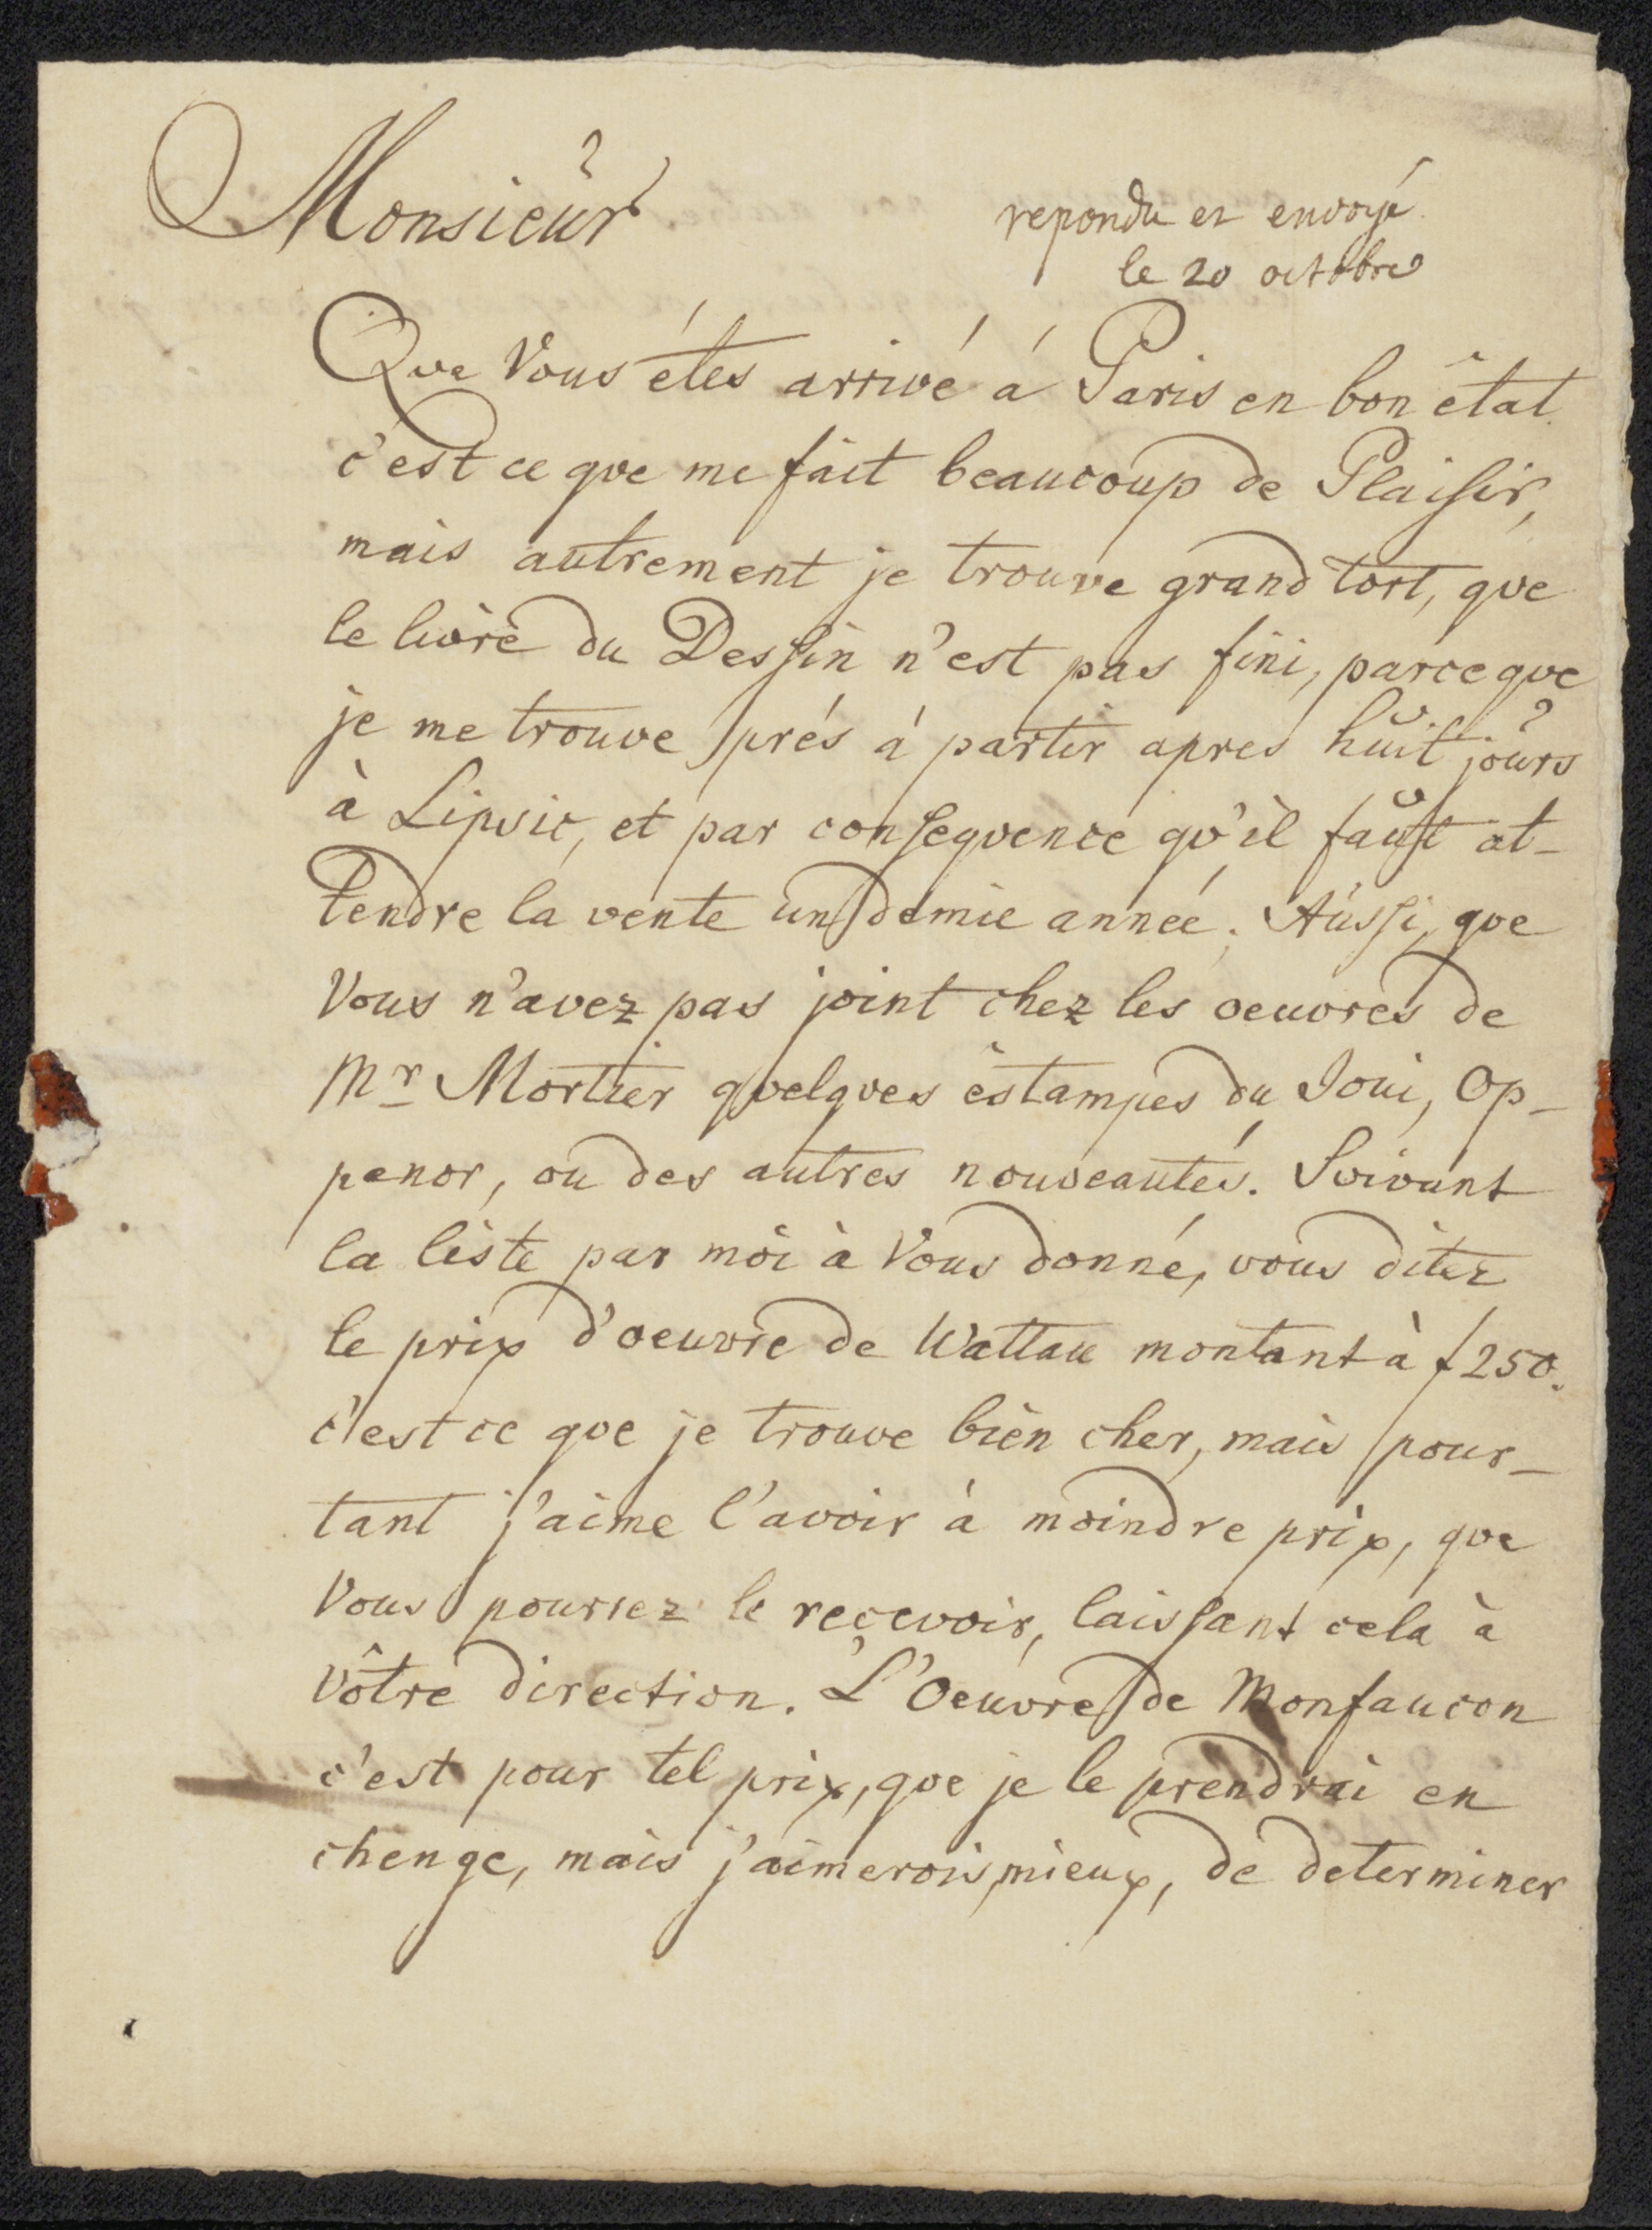 Monsieur
repondu et envoyé
le 20 octobre
Que Vous étes arrivé á Paris en bon êtat
c'est ce que me fait beaucoup de Plaisir,
mais autrement je trouve grand tort, que
le livre du Dessin n'est pas fini, parceque
je me trouve prés á partir apres huit jours
à Lipsic, et par consequence qu'il faut at-
tendre la vente un demie année. Aussi, que
Vous n'avez pas joint chez les oeuvres de
Mr Mortier quelques estampes du Joui, Op-
penor, ou des autres nouveautés. Suivant
la liste par moi à Vous donné, vous ditez
le prix d'oeuvre de Wattau montant à f 250.
c'est ce que je trouve bien cher, mais pour-
tant j'aime l'avoir à moindre prix, que
Vous pourrez le reçevoir, laissant cela à
vôtre direction. L'Oeuvre de Monfaucon
c'est pour tel prix, que je le prendrai en
chenge, mais j'aimerois mieux, de determiner